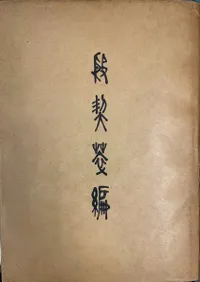 殷契萃編